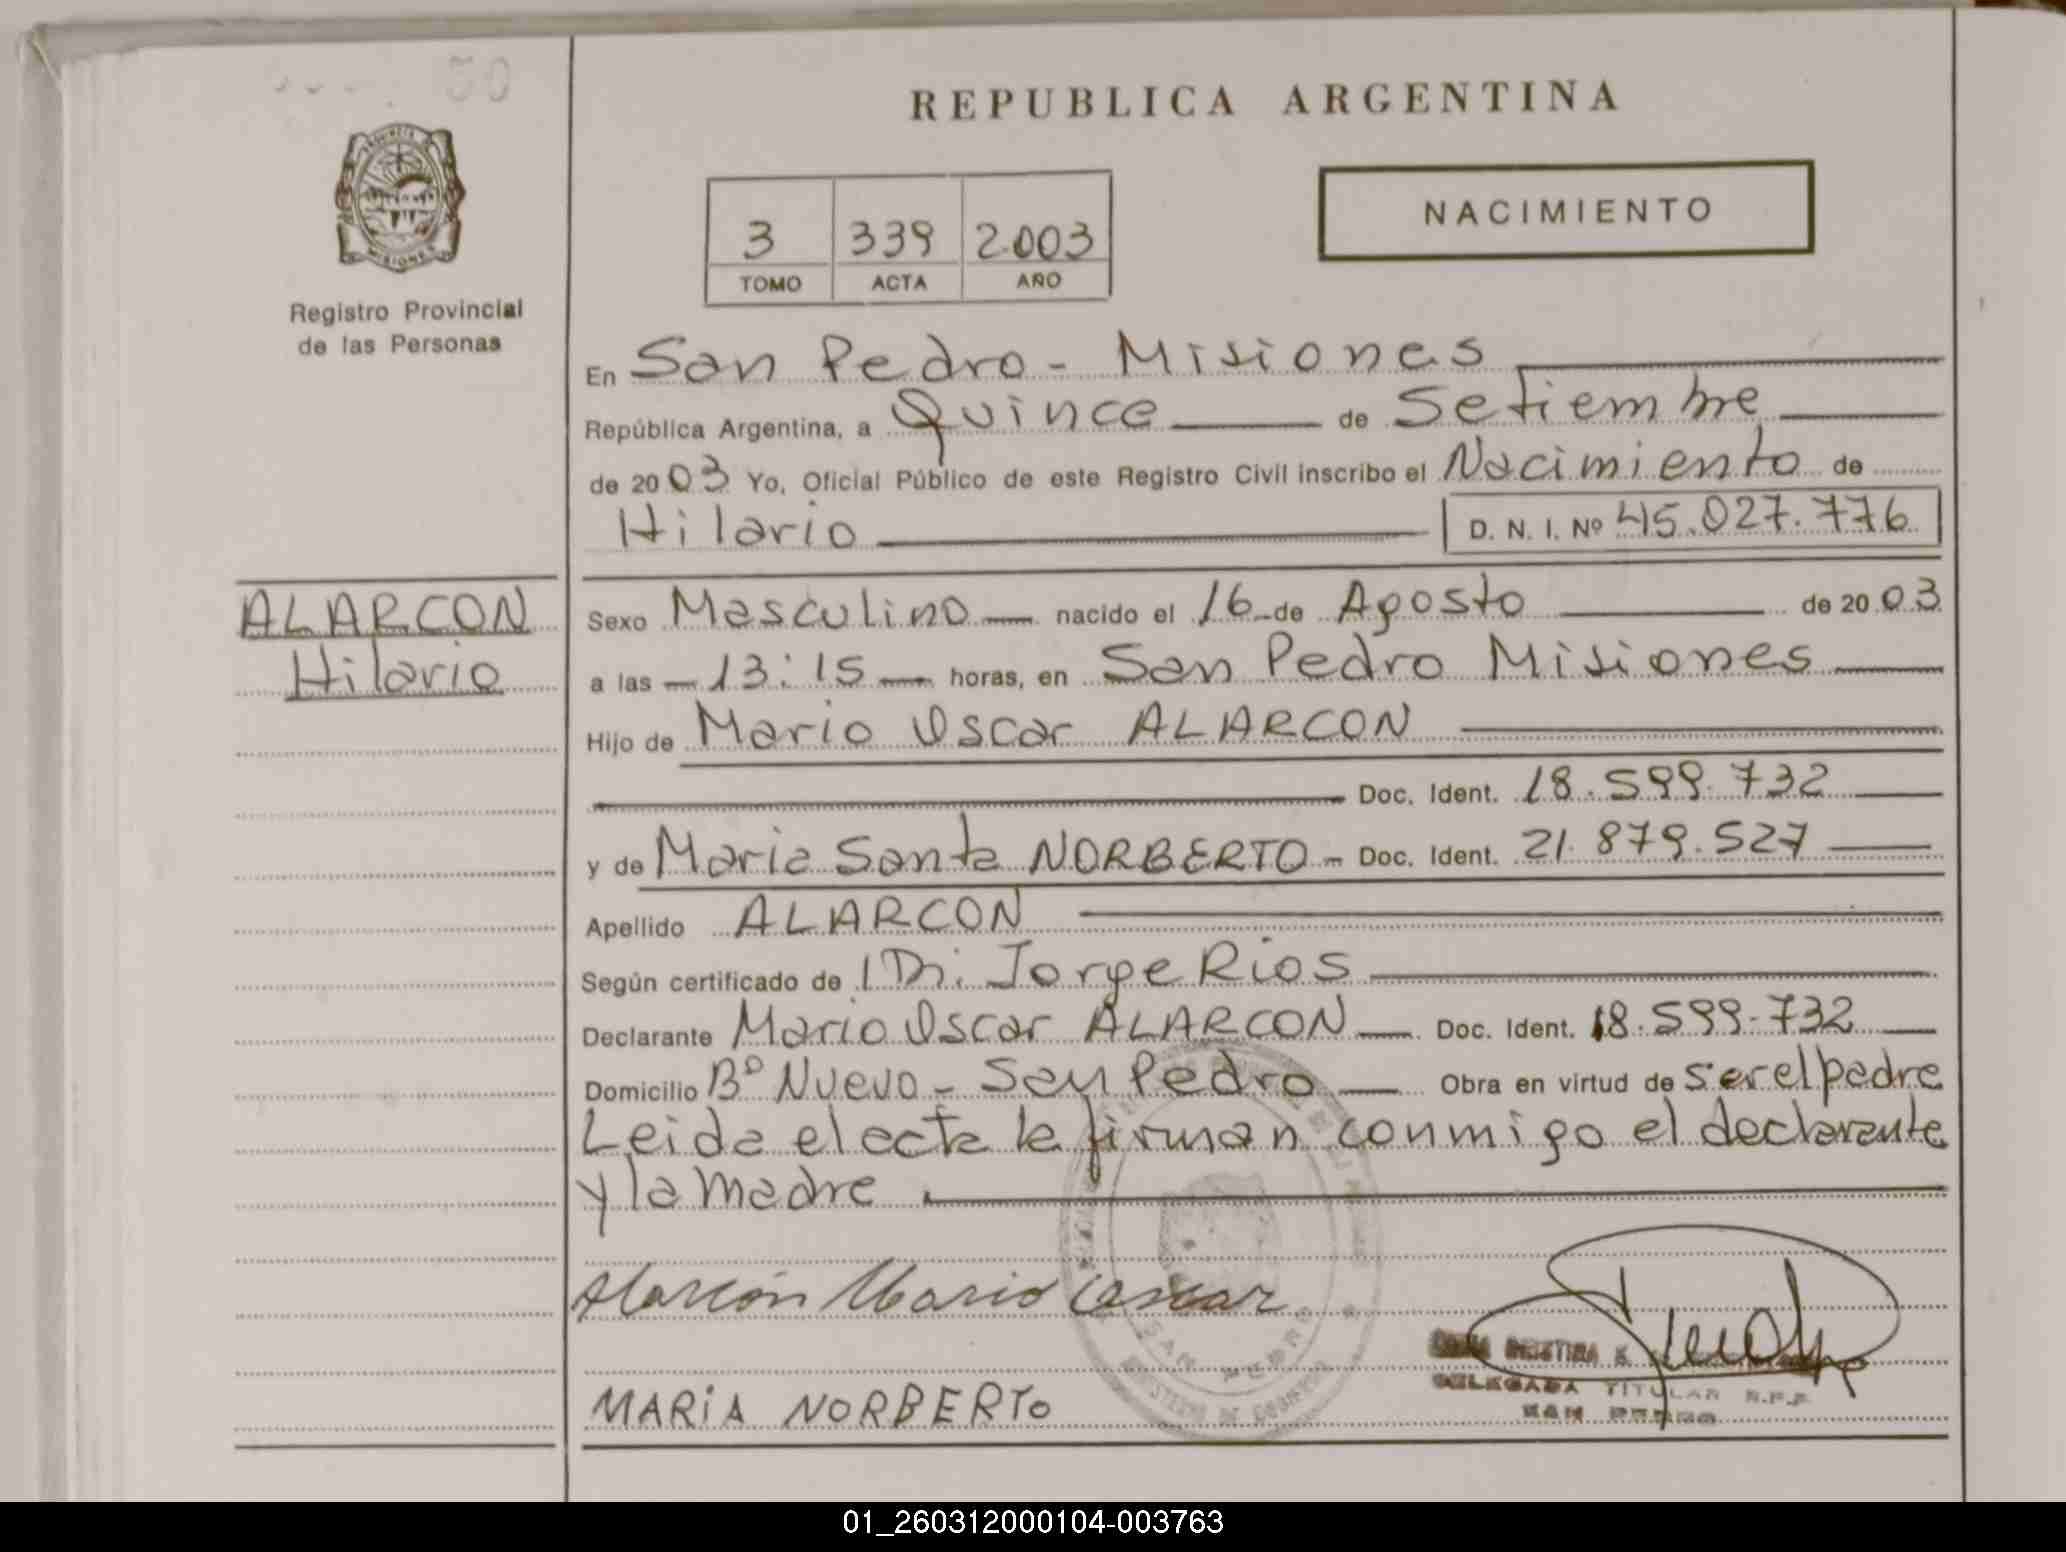 50
REPUBLICA ARGENTINA
NACIMIENTO
3 339 2.003
TOMO ACTA AÑO
PROVINCIA DE
MISIONES
Registro Provincial
de las Personas
En San Pedro - Misiones
República Argentina, a Quince de Setiembre
de 2003 Yo, Oficial Público de este Registro Civil inscribo el Nacimiento de
Hilario D. N. I. Nº 45.027.776
ALARCON
Hilario
Sexo Masculino nacido el 16 de Agosto de 2003
a las 13:15 horas, en San Pedro Misiones
Hijo de Mario Oscar ALARCON
Doc. Ident. 18.599.732
y de Maria Santa NORBERTO - Doc. Ident. 21.879.527
Apellido ALARCON
Según certificado de Dr. Jorge Rios
Declarante Mario Oscar ALARCON Doc. Ident. 18.599.732
Domicilio Bº Nuevo - San Pedro Obra en virtud de ser el padre
Leida el acta la firman conmigo el declarante
y la madre
Alarcón Mario Oscar
MARIA NORBERTO
SAN PEDRO
MINISTERIO DE GOBIERNO
DELEGADA TITULAR R.P.P.
SAN PEDRO
01_260312000104-003763